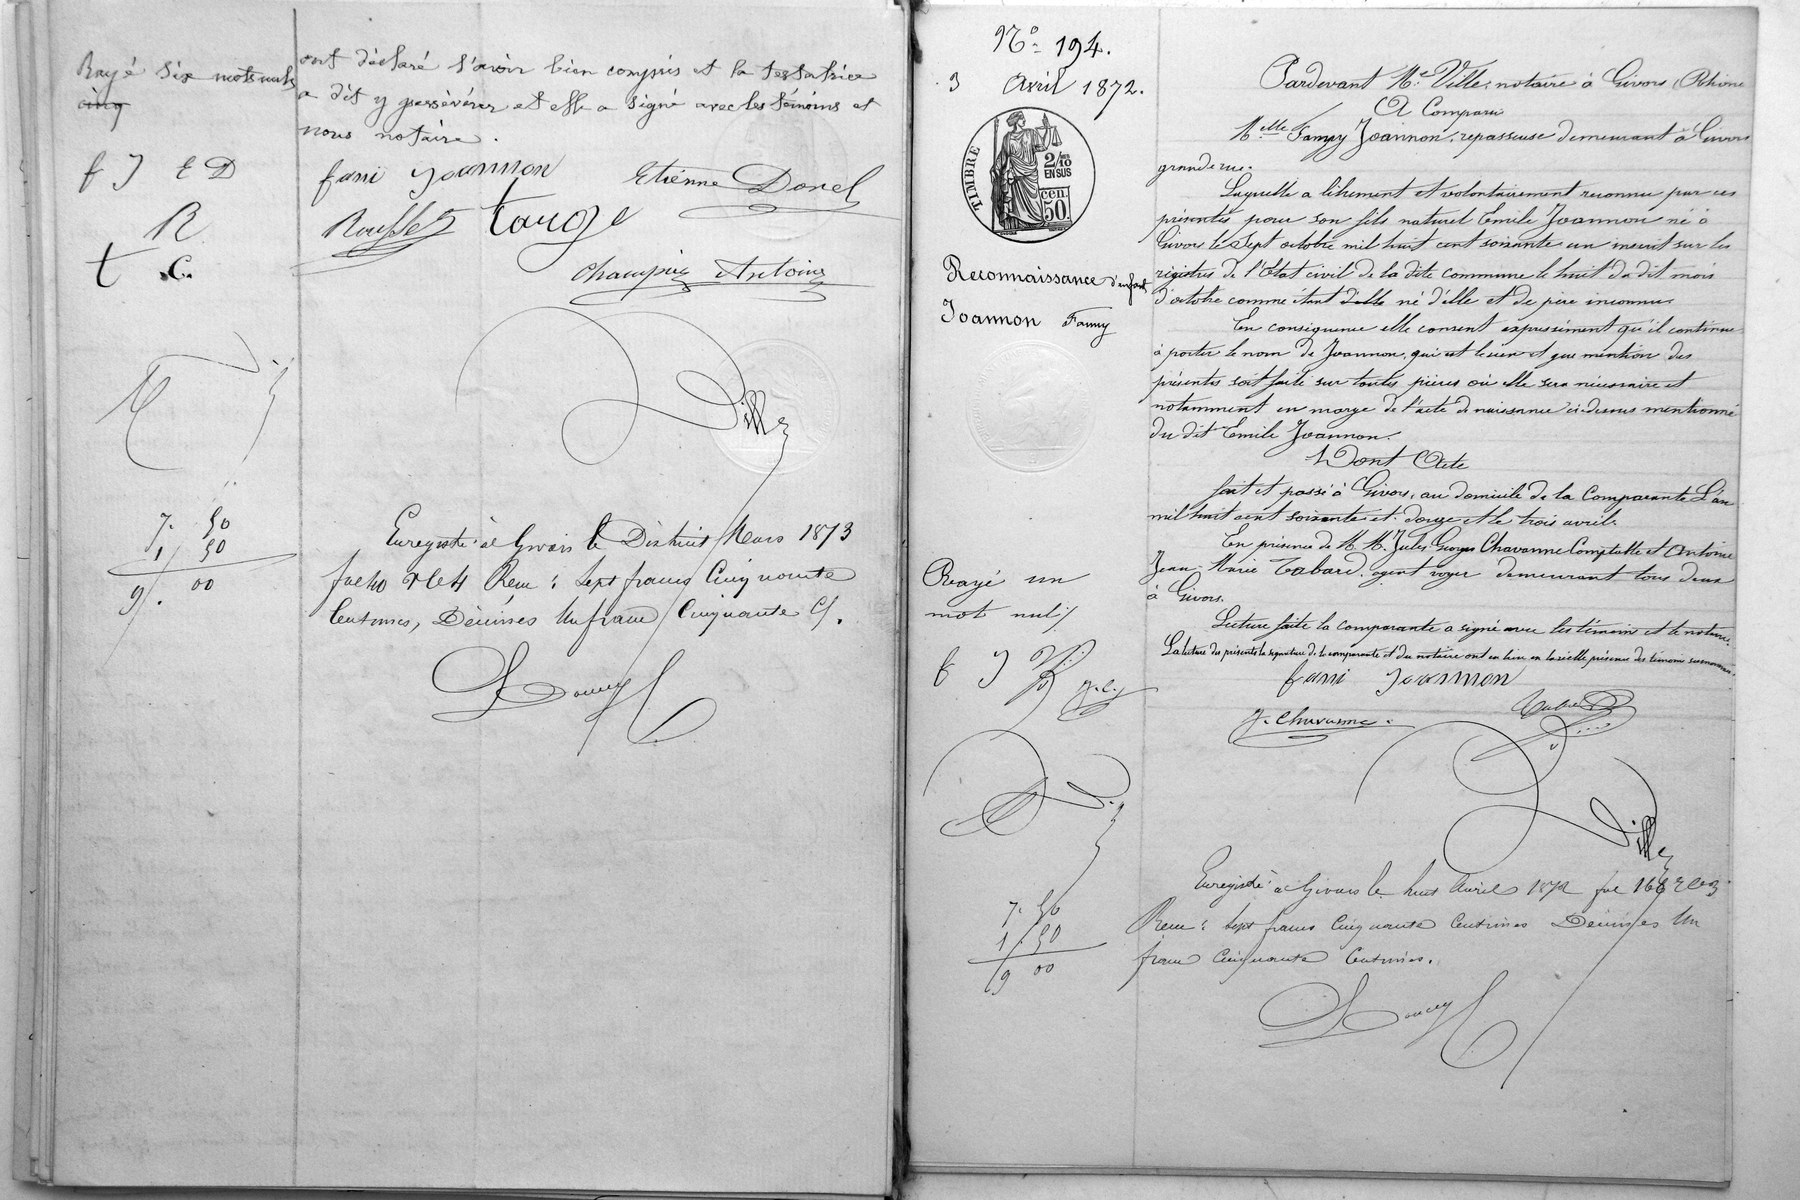 Rayé six mots nuls
cinq
f J E D
R
t .C.
7. 50
1 50
9. 00
ont déclaré l'avoir bien compris et la testatrice
a dit y persévérer et elle a signé avec les témoins et
nous notaire.
fani Joannon Etienne Dorel
Rousset targe
Champin Antoine
Ville
Enregistré à Givors le Dix huit Mars 1873
folio Reçu : Sept francs Cinquante
Centimes, Décimes Un franc Cinquante C/.
No 194.
3 Avril 1872.
TIMBRE
2/10
EN SUS
50 cen
Reconnaissance d'enfant
Joannon Fanny
Rayé un
mot nul/
f J
J. C.
7. 50
1. 50
9 00
Pardevant Me Ville, notaire à Givors (Rhône
A Comparu
Melle Fanny Joannon, repasseuse demeurant à Givors
grande rue.
Laquelle a librement et volontairement reconnu par ces
présentes pour son fils naturel Emile Joannon né à
Givors le sept octobre mil huit cent soixante un inscrit sur les
régistres de l'Etat civil de la dite commune le huit du dit mois
d'octobre comme étant d'elle né d'elle et de père inconnu.
En conséquence elle consent expressément qu'il continue
à porter le nom de Joannon, qui est le sien et que mention des
présentes soit faite sur toutes pièces où elle sera nécessaire et
notamment en marge de l'acte de naissance ci-dessus mentionné
du dit Emile Joannon.
Dont Acte
fait et passé à Givors, au domicile de la Comparante L'an
mil huit cent soixante et douze et le trois avril.
En présence de M.M. Jules Georges Chavanne Comptable et Antoine
Jean-Marie Tabard, agent voyer demeurant tous deux
à Givors.
Lecture faite la comparante a signé avec les témoins et le notaire.
La lecture des présentes la signature de la comparante et du notaire ont eu lieu en la réelle présence des témoins susnommés.
fani Joannon
J. Chavanne. Tabard
Ville
Enregistré à Givors le huit Avril 1872 fol 166
Reçu : Sept francs Cinquante Centimes Décimes Un
franc Cinquante Centimes.